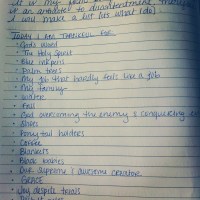 an antidote to discontentment
I will make a list (of what I do)
TODAY I AM THANKFUL FOR...
• God's Word
• The Holy Spirit
• Blue ink pens
• Palm trees
• My job that hardly feels like a job
• My family
• Water
• Fall
• God overcoming the enemy & conquering
• Shoes
• Pony tail holders
• Coffee
• Blankets
• Book
• Our supreme & awesome creator
• GRACE
• Joy despite trials